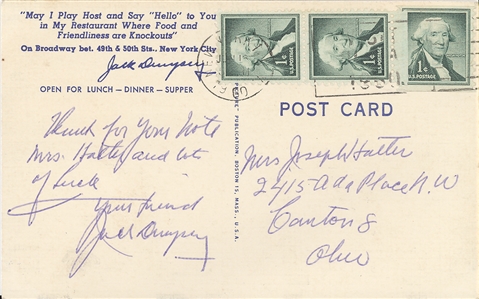 "May I Play Host and Say "Hello" to You
in My Restaurant Where Food and
Friendliness are Knockouts"
On Broadway bet. 49th & 50th Sts., New York City
Jack Dempsey
OPEN FOR LUNCH—DINNER—SUPPER
Thank for your note
Mrs. Hatter and lots
of luck
your friend
Jack Dempsey
PUBLICATION, BOSTON 15, MASS., U.S.A.
1¢
U.S. POSTAGE
1¢
U.S. POSTAGE
1¢
U.S. POSTAGE
POST CARD
Mrs Joseph Hatter
2415 Ada Place N.W
Canton 8
Ohio